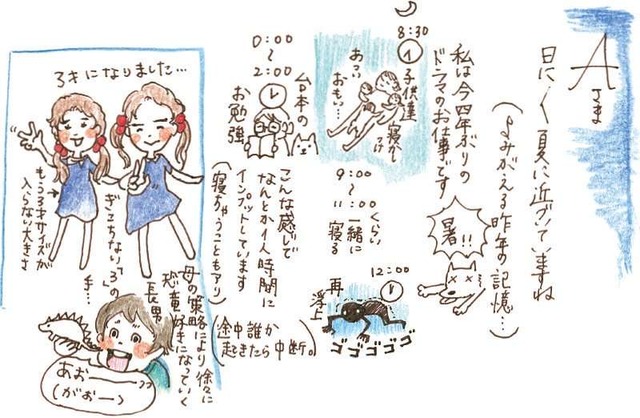 Aさま
日に日に夏に近づいていますね
(よみがえる昨年の記憶…)
暑!!
私は今四年ぶりの
ドラマのお仕事です
8:30
子供達
寝かしつけ
あつい
おもい…
9:00
〜
11:00くらい
一緒に
寝る
12:00
再
浮上
ゴゴゴゴゴ
0:00
〜
2:00
台本の
お勉強
こんな感じで
なんとか1人時間に
インプットしています
(寝ちゃうこともアリ)
(途中誰か
起きたら中断。)
3才になりました…
もう3才サイズが
入らない大きさ
ぎこちない「3」の
手…
母の策略により徐々に
恐竜好きになっていく
長男
あおーー
(がおー)